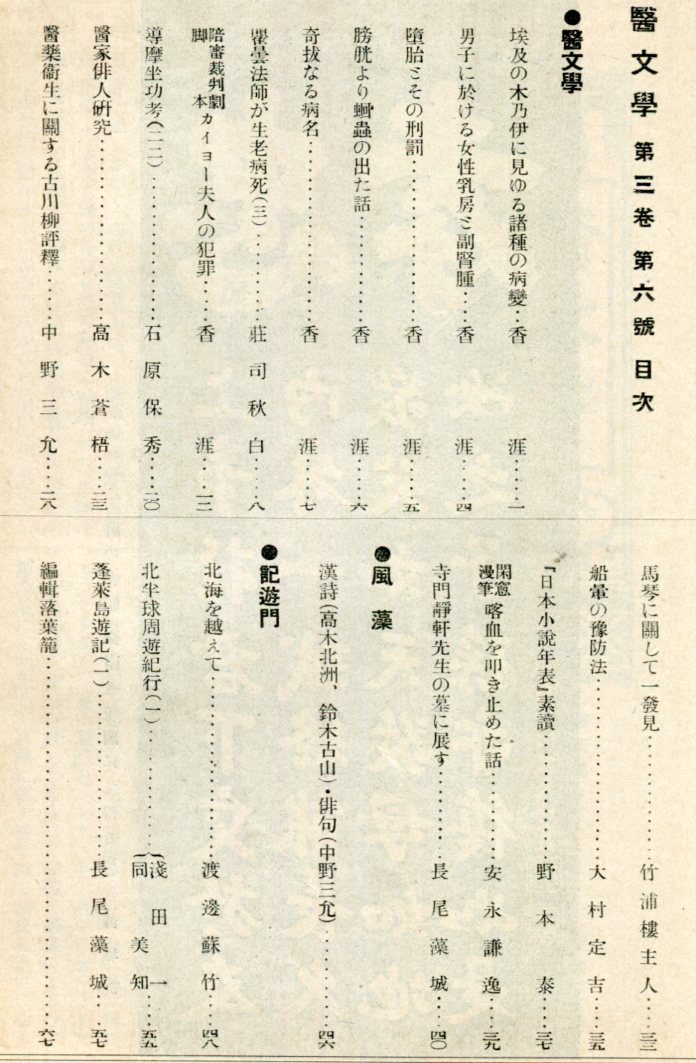 醫文學 第三卷 第六號 目次
●醫文學
埃及の木乃伊に見ゆる諸種の病變‥香涯‥‥一
男子に於ける女性乳房と副腎腫‥‥香涯‥‥四
墮胎とその刑罰‥‥‥‥‥‥香涯‥‥五
膀胱より蛔蟲の出た話‥‥‥‥‥香涯‥‥六
奇拔なる病名‥‥‥‥‥‥‥香涯‥‥七
瞿曇法師が生老病死(三)‥‥‥‥莊司秋白‥‥八
陪審裁判劇脚本 カイヨー夫人の犯罪‥‥香涯‥‥一二
導摩坐功考(二二)‥‥‥‥‥‥石原保秀‥‥二〇
醫家俳人硏究‥‥‥‥‥‥‥高木蒼梧‥‥二三
醫藥衞生に關する古川柳評釋‥‥‥中野三允‥‥二八
馬琴に關して一發見‥‥‥‥‥‥竹浦樓主人‥‥三三
船暈の豫防法‥‥‥‥‥‥‥大村定吉‥‥三五
『日本小說年表』素讀‥‥‥‥‥野本泰‥‥三七
閑窓漫筆 喀血を叩き止めた話‥‥‥‥安永謙逸‥‥三九
寺門靜軒先生の墓に展す‥‥‥‥長尾藻城‥‥四〇
●風藻
漢詩(高木北洲、鈴木古山)・俳句(中野三允)‥‥‥‥四六
●記遊門
北海を越えて‥‥‥‥‥‥‥渡邊蘇竹‥‥四八
北半球周遊紀行(一)‥‥‥‥‥{淺田一 同美知‥‥五五
蓬萊島遊記(一)‥‥‥‥‥‥長尾藻城‥‥五七
編輯落葉籠‥‥‥‥‥‥‥‥‥‥‥‥六七